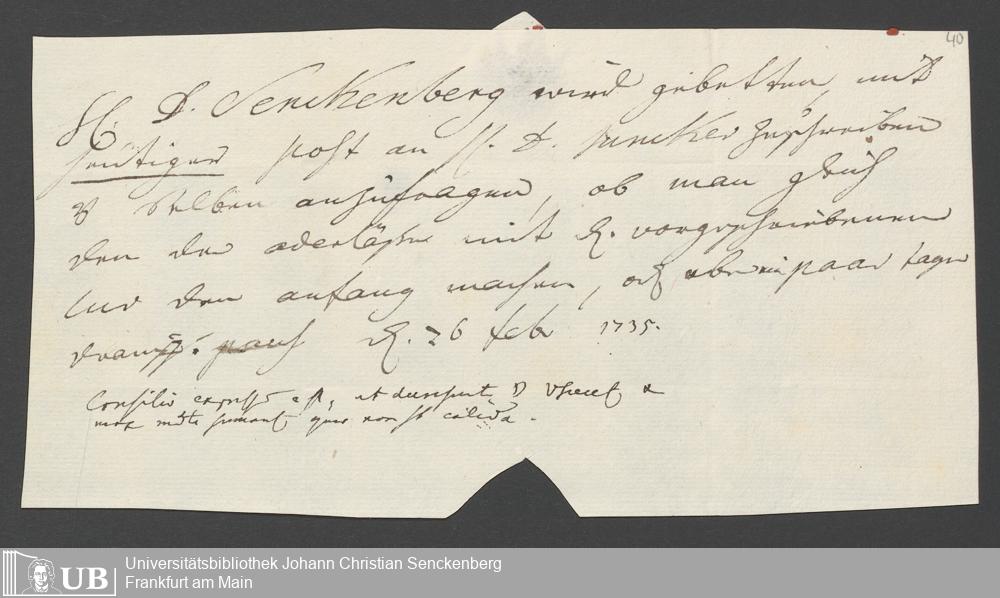 40
H. D. Senckenberg wird gebetten, mit
heutiger post an H. D. Juncker zuschreiben
selben anzufragen, ob man gleich
den der aderläße mit d. vorgeschriebenen
Cur den anfang machen, od aber ein paar tage
drauff. d. 26 febr 1735.
Consilio
calida.
Universitätsbibliothek Johann Christian Senckenberg
UB Frankfurt am Main